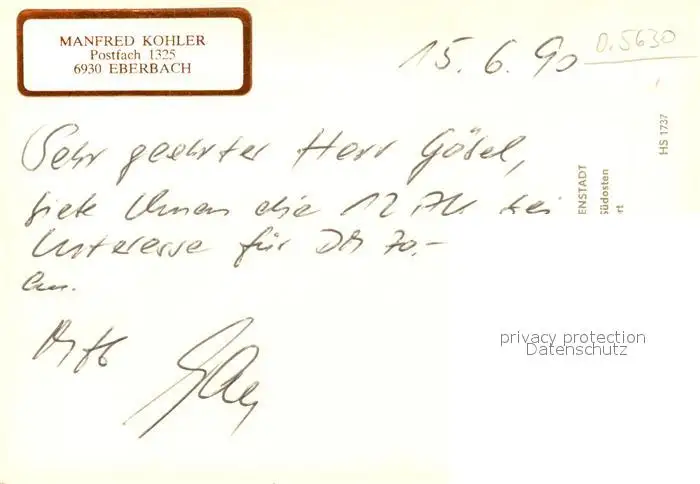 MANFRED KOHLER
Postfach 1325
6930 EBERBACH
15.6.90
0.5630
Sehr geehrter Herr Gösel,
biete Ihnen die 12 AK bei
Interesse für DM 70,-
an.
MfG
HS 1737
ENSTADT
Südosten
rt
privacy protection
Datenschutz